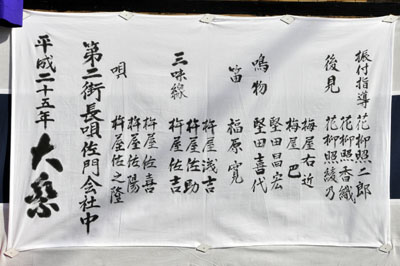 振付指導 花柳照二郎
花柳照香織
後見 花柳照綾乃
梅屋右近
梅屋巴
鳴物 堅田昌宏
堅田喜代
笛 福原寛
杵屋浅吉
杵屋佐助
三味線 杵屋佐吉
杵屋佐喜
杵屋佐陽
唄 杵屋佐之隆
第二街長唄佐門会社中
平成二十五年 大祭